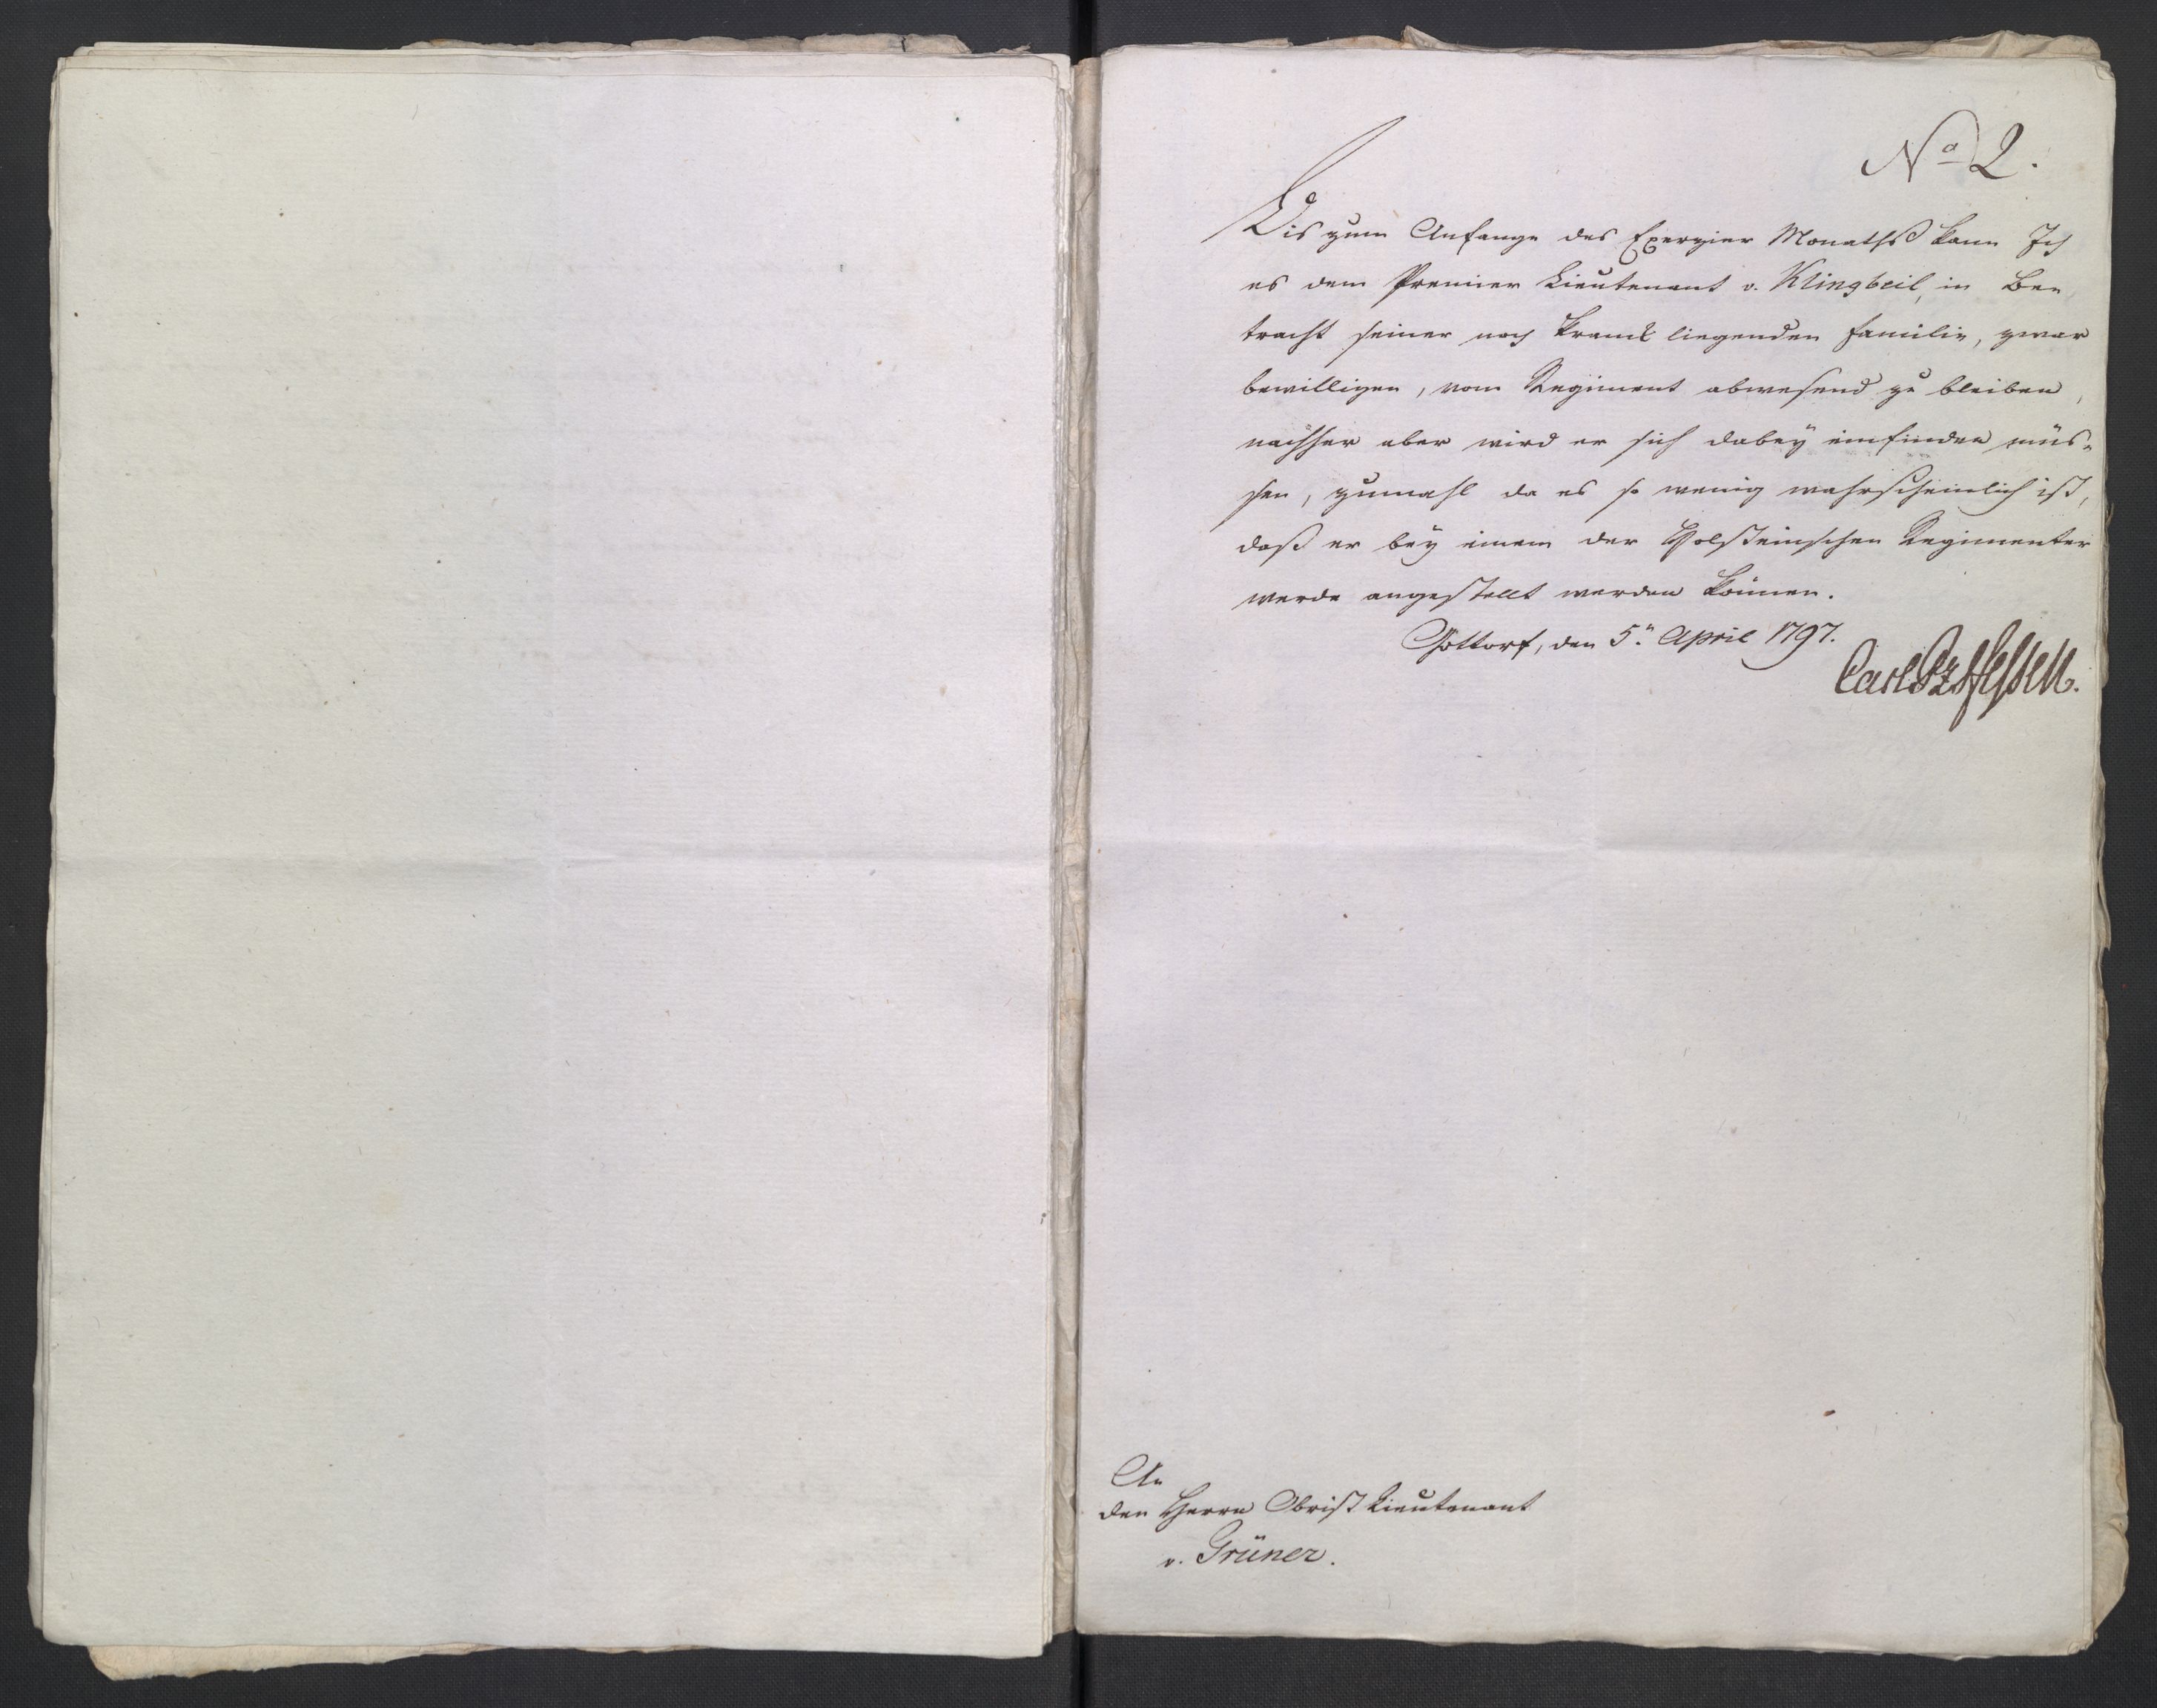 No 2.
Bis zum Anfange des Exerzier Monathß kann Ich
es dem Premier Lieutenant v. Klingbeil, in Be-
tracht seiner noch krank liegenden Familie, zwar
bewilligen, vom Regiment abwesend zu bleiben,
nachher aber wird er sich dabey einfinden müs-
sen, zumahl da es so wenig wahrscheinlich ist,
daß er bey einem der Holsteinschen Regimenter
werde angestellt werden können.
Gottorf, den 5n. April 1797.
Carl Pz Hessen.
An
den Herrn Obrist Lieutenant
v. Grüner.